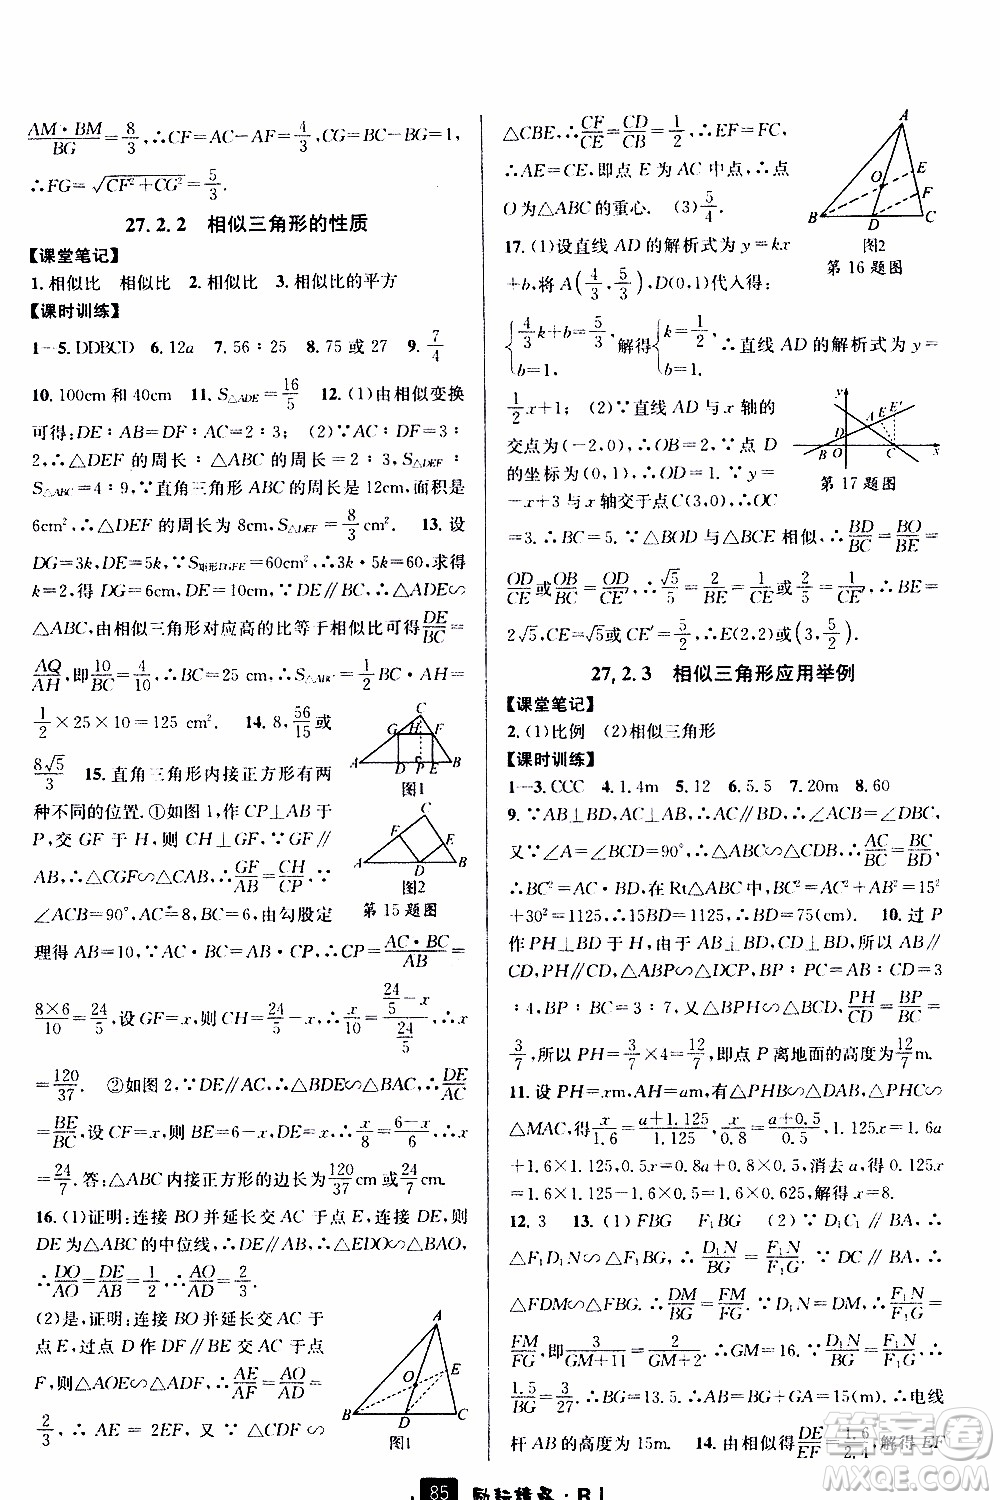 AM·BM/BG=8/3,∴CF=AC-AF=4/3,CG=BC-BG=1,
∴FG=√(CF²+CG²)=5/3.
27.2.2 相似三角形的性质
【课堂笔记】
1.相似比 相似比 2.相似比 3.相似比的平方
【课时训练】
1—5.DDBCD 6.12a 7.56∶25 8.75或27 9.7/4
10.100cm和40cm 11.S△ADE=16/5 12.(1)由相似变换
可得:DE∶AB=DF∶AC=2∶3; (2)∵AC∶DF=3∶
2,∴△DEF的周长∶△ABC的周长=2∶3,S△DEF∶
S△ABC=4∶9,∵直角三角形ABC的周长是12cm,面积是
6cm²,∴△DEF的周长为8cm,S△DEF=8/3cm². 13.设
DG=3k,DE=5k,∵S矩形DGFE=60,∴3k·5k=60,求得
k=2,得DG=6cm,DE=10cm,∵DE∥BC,∴△ADE∽
△ABC,由相似三角形对应高的比等于相似比可得DE/BC=
AQ/AH,即10/BC=4/10,∴BC=25,∴S△ABC=1/2×BC×AH=
1/2×25×10=125 cm². 14.8,56/15或
8√5/3 15.直角三角形内接正方形有两
种不同的位置.①如图1,作CP⊥AB于
P,交GF于H,则CH⊥GF,∵GF∥
AB,∴△CGF∽△CAB,∴GF/AB=CH/CP,∵
∠ACB=90°,AC=8,BC=6,由勾股定
理得AB=10,∵AC·BC=AB·CP,∴CP=AC·BC/AB=
8×6/10=24/5,设GF=x,则CH=24/5-x,∴x/10=(24/5-x)/(24/5),∴x
=120/37. ②如图2,∵DE∥AC,∴△BDE∽△BAC,∴DE/AC
=BE/BC,设CF=x,则BE=6-x,DE=x,∴x/8=(6-x)/6,∴x
=24/7.答:△ABC内接正方形的边长为120/37或24/7.
16.(1)证明:连接BO并延长交AC于点E,连接DE,则
DE为△ABC的中位线,∴DE∥AB,∴△EDO∽△BAO,
∴DO/AO=DE/AB=1/2,∴AO/AD=2/3.
(2)是,证明:连接BO并延长交AC于
点E,过点D作DF∥BE交AC于点
F,则△AOE∽△ADF,∴AE/AF=AO/AD=
2/3,∴AE=2EF,又∵△CDF∽
C
G H F
A D P E B
图1
C
A B
图2
第15题图
A
E
O
B D C
图1
△CBE,∴CF/CE=CD/CB=1/2,∴EF=FC,
∴AE=CE,∴点E为AC中点,∴点
O为△ABC的重心. (3)5/4.
17.(1)设直线AD的解析式为y=kx
+b,将A(4/3,5/3),D(0,1)代入得:
{4/3k+b=5/3,b=1.解得{k=1/2,b=1.∴直线AD的解析式为y=
1/2x+1; (2)∵直线AD与x轴的
交点为(-2,0),∴OB=2,∵点D
的坐标为(0,1),∴OD=1,∵y=-x
+3与x轴交于点C(3,0),∴OC
=3,∴BC=5.∵△BOD与△BCE相似,∴BD/BC=BO/BE=
OD/CE或OB/BC=OD/CE,∴√5/5=2/BE=1/CE或2/5=1/CE′,∴BE=
2√5,CE=√5或CE′=5/2,∴E(2,2)或(3,5/2).
A
E
O
F
B D C
图2
第16题图
y
A E E′
D
B O C x
第17题图
27.2.3 相似三角形应用举例
【课堂笔记】
2.(1)比例 (2)相似三角形
【课时训练】
1—3.CCC 4.1.4m 5.12 6.5.5 7.20m 8.60
9.∵AB⊥BD,AC⊥AB,∴AC∥BD,∴∠ACB=∠DBC,
又∵∠A=∠BCD=90°,∴△ABC∽△CDB,∴AC/BC=BC/BD
∴BC²=AC·BD,在Rt△ABC中,BC²=AC²+AB²=15²
+30²=1125,∴15BD=1125,∴BD=75(cm) 10.过P
作PH⊥BD于H,由于AB⊥BD,CD⊥BD,所以AB∥
CD,所以PH∥CD,∴△ABP∽△DCP,AP∶CP=3
∶4,BP∶BC=3∶7,又△BPH∽△BCD,PH/CD=BP/BC=
3/7,所以PH=3/7×4=12/7,即点P离地面的高度为12/7m.
11.设PH=xm,AH=am,有△PHB∽△DAB,△PHC∽
△MAC,∴x/1.6=(a+1.125)/1.125,x/0.8=(a+0.5)/0.5,1.125x=1.6a
+1.6×1.125,0.5x=0.8a+0.8×0.5,消去a,得0.2x
=1.6×1.125-1.6×0.5=1.6×0.625,解得x=8.
12.3 13.(1)FBG F₁BG (2)∵D₁C₁∥BA,∴
△F₁D₁N∽△F₁BG.∴D₁N/BG=F₁N/F₁G.∵DC∥BA,∴
△FDM∽△FBG.∴DM/BG=FM/FG.∵D₁N=DM,∴F₁N/F₁G=
FM/FG,即3/(GM+11)=2/(GM+2).∴GM=16.∵D₁N/BG=F₁N/F₁G,∴
1.5/BG=3/27.∴BG=13.5.∴AB=BG+GA=15(m).∴电线
杆AB的高度为15m. 14.由相似得DE/EF=1.6/2.4,解得EF
85 励耘精品·RJ